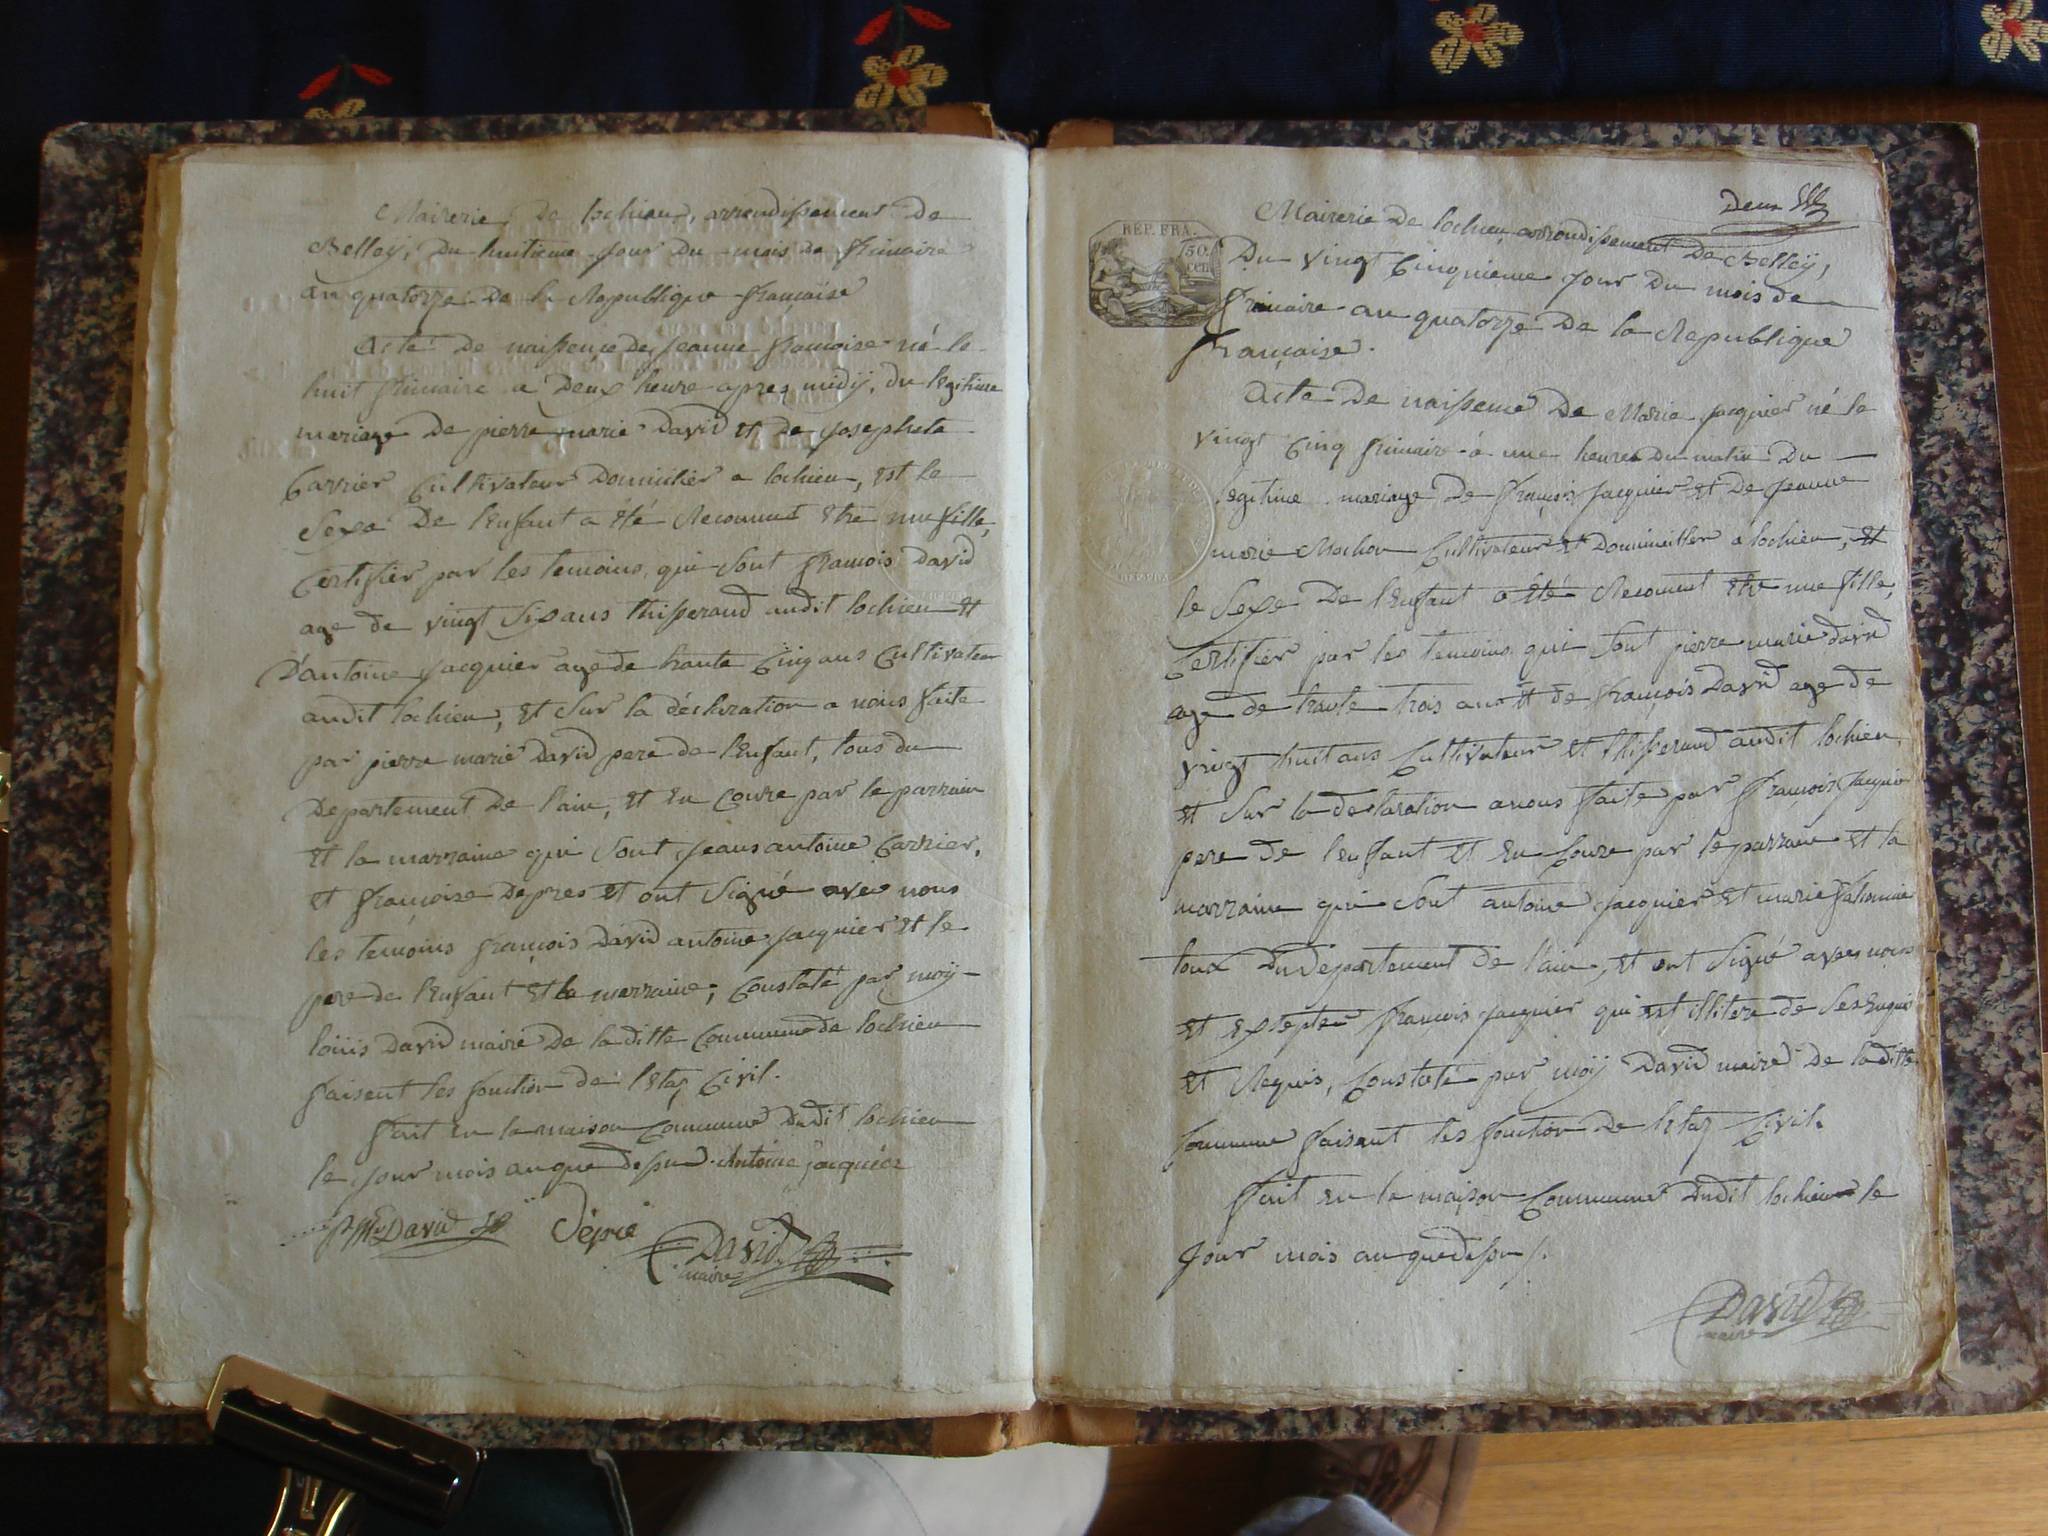 Mairerie De lochieu, arrondissement De
Belley, Du huitieme jour Du mois De frimaire
an quatorze De la Republique française
Acte De naissence De Jeanne françoise né le
huit frimaire a Deux heure apres midÿ, Du legitime
mariage De pierre marie David et De Josephete
Carrier Cultivateur Domicilier a lochieu, est le
Sexe De l'enfant a été Reconnut etre une fille,
Certifier par les temoins qui Sont françois David
age de vingt Six ans thisserand audit lochieu et
D'antoine Jacquier age de trante Cinq ans Cultivateur
audit lochieu, et Sur la déclaration a nous faite
par pierre marie David pere de l'enfant, tous du
Departement De l'ain, et en Coure par le parrain
et la marraine qui Sont Jean antoine Carrier,
et françoise Depres et ont Signé avec nous
les temoins françois David antoine Jacquier et le
pere de l'enfant et la marraine; Constaté par moÿ
loüis David maire De la ditte Commune de lochieu
faisent les fonction de l'etaz Civil.
fait en la maison Commune Dudit lochieu
le jour mois an que desu. Antoine jacquier
P Me David Dépré David
maire
Deux
REP. FRA.
50
CEN
Mairerie De lochieu arrondissement De Belleÿ,
Du vingt Cinquieme Jour Du mois de
frimaire an quatorze De la Republique
française.
Acte De naissence De Marie jacquier né le
vingt Cinq frimaire a une heures Du matin Du
legitime mariage De françois Jacquier et De Jeanne
marie Mochon Cultivateur et Domicillier a lochieu, et
le Sexe De l'enfant a été Reconnut etre une fille,
Certifier par les temoins qui Sont pierre marie David
age de trante trois ans et de françois David age De
vingt huit ans Cultivateur et thisserand audit lochieu
et Sur la declaration a nous faite par françois Jacquier
pere de l'enfant et en Coure par le parrain et la
marraine qui Sont antoine Jacquier et marie
toux du Departement de l'ain, et ont Signé avec nous
et exsepter francois jacquier qui est illitere de Ses enquis
et Requis, Constaté par moÿ David maire De la ditte
Commune faisant les fonction De l'etaz Civil.
fait en la maison Commune Dudit lochieu le
Jour mois an que desu /.
David
maire